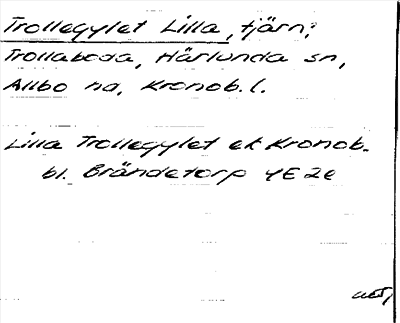 Trollegylet Lilla, tjärn;
Trollaboda, Härlunda sn,
Allbo hd, Kronob. l.
Lilla Trollegylet ek Kronob.
bl. Brändetorp 4E2e